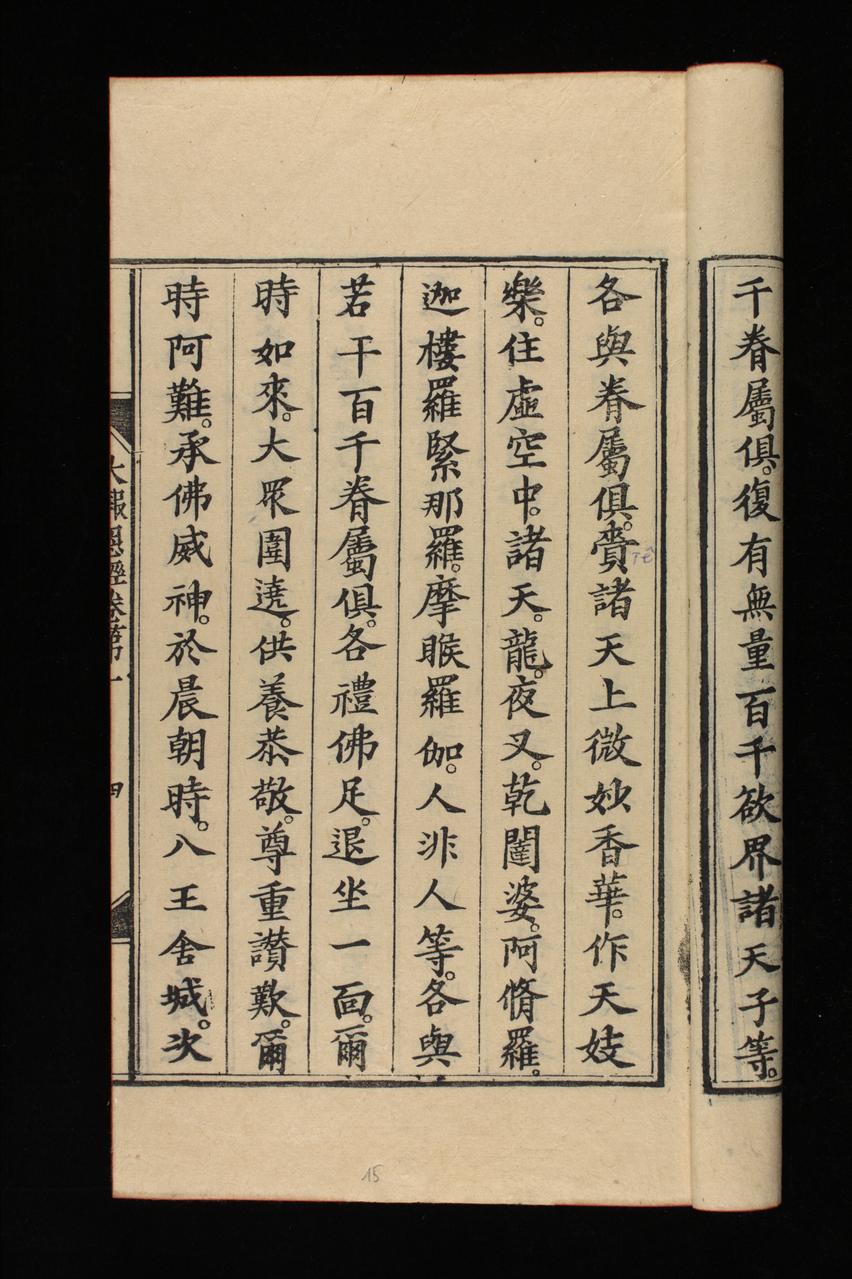 千眷屬俱。復有無量百千欲界諸天子等。
各與眷屬俱。賫諸天上微妙香華。作天妓
樂。住虛空中。諸天。龍。夜叉。乾闥婆。阿脩羅。
迦樓羅緊那羅。摩睺羅伽。人非人等。各與
若干百千眷屬俱。各禮佛足。退坐一面。爾
時如來。大眾圍遶。供養恭敬。尊重讚歎。爾
時阿難。承佛威神。於晨朝時。入王舍城。次
大報恩經卷第一 四
15